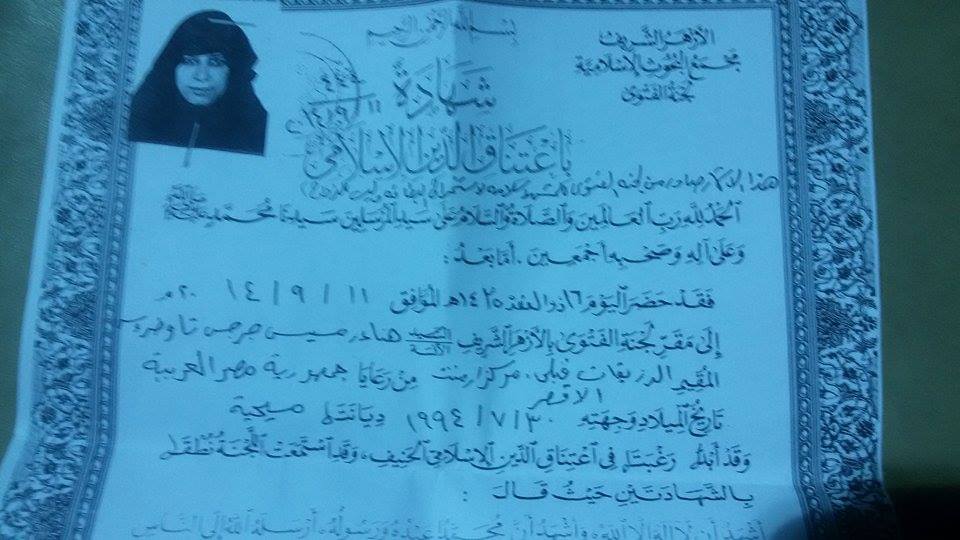 بسم الله الرحمن الرحيم
الأزهر الشريف
مجمع البحوث الإسلامية
لجنة الفتوى
شهادة
١٤/٩/١١
باعتناق الدين الإسلامي
هذا صادر من لجنة الفتوى
الحمد لله رب العالمين والصلاة والسلام على سيد المرسلين سيدنا محمد ﷺ
وعلى آله وصحبه أجمعين . أما بعد :
فقد حضر اليوم ١٦ ذو القعدة ١٤٣٥ هـ الموافق ١١ / ٩ / ١٤ ٢٠م
إلى مقر لجنة الفتوى بالأزهر الشريف السيد الآنسة هناء رميس جرجس تاوضروس
المقيم الرزيقات قبلى. مركز ارمنت من رعايا جمهورية مصر العربية
الاقصر
تاريخ الميلاد وجهته ٣٠ / ٧ / ١٩٩٤ ديانته مسيحية
وقد أبدله رغبته في اعتناق الدين الإسلامي الحنيف، وقد استمعت اللجنة نطقه
بالشهادتين حيث قال :
أشهد أن لا إله إلا الله، وأشهد أن محمدا عبده ورسوله، أرسله الله إلى الناس